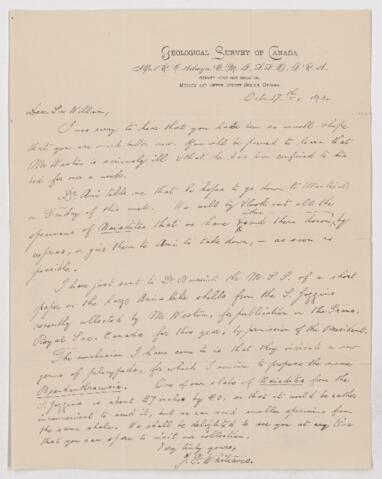 GEOLOGICAL SURVEY OF CANADA
Alfred R. C. Selwyn, C. M. G., LL. D., F. R. S.
DEPUTY HEAD AND DIRECTOR.
MUSEUM AND OFFICE SUSSEX STREET OTTAWA.
Oct. 17th, 189
Dear Sir William,
I was sorry to hear that you have been so unwell & hope
that you are much better now. You will be grieved to learn that
Mr Weston is seriously ill & that he has been confined to his
bed for over a week.
Dr. Ami tells me that he hopes to go down to Montreal
on Tuesday of this week. We will try to look out all the
specimens of Naiadites that we have & send them down by
express, or give them to Ami to take down, – as soon as
possible.
I have just sent to Dr the M.S.S. of a short
paper on the large like shells from the S. Joggins
recently collected by Mr Weston, for publication in the Trans.
Royal Soc. Canada for this year, by permission of the President.
The conclusion I have come to is that they indicate a new
genus of pelecypoda, for which I to propose the name
One of our slabs of Naiadites from the
S. Joggins is about 27 inches by 20, so that it would be rather
inconvenient to send it, but we can send smaller specimens from
the same shale. We shall be delighted to see you at any time
that you can spare to visit our collection.
Very truly yours,
J. F. Whiteaves.